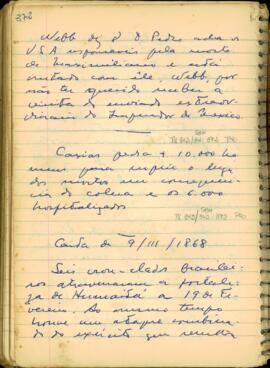 372
Webb diz q D Pedro acha os
USA responsaveis pela morte
de Maximiliano e está
irritado com ele, Webb, por
não ter querido receber a
visita do enviado extraor-
dinario do Imperador do Mexico.
Caxias pede + 10.000 ho
mens para suprir o lugar
dos mortos em consequen
cia do colera e os 6.000
hospitalizados
Carta de 9/III/1868
Seis iron-clads brasilei-
ros atravessaram a fortale-
za de Humaitá a 19 de Fe-
vereiro. Ao mesmo tempo
houve um ataque combina-
do do exército que